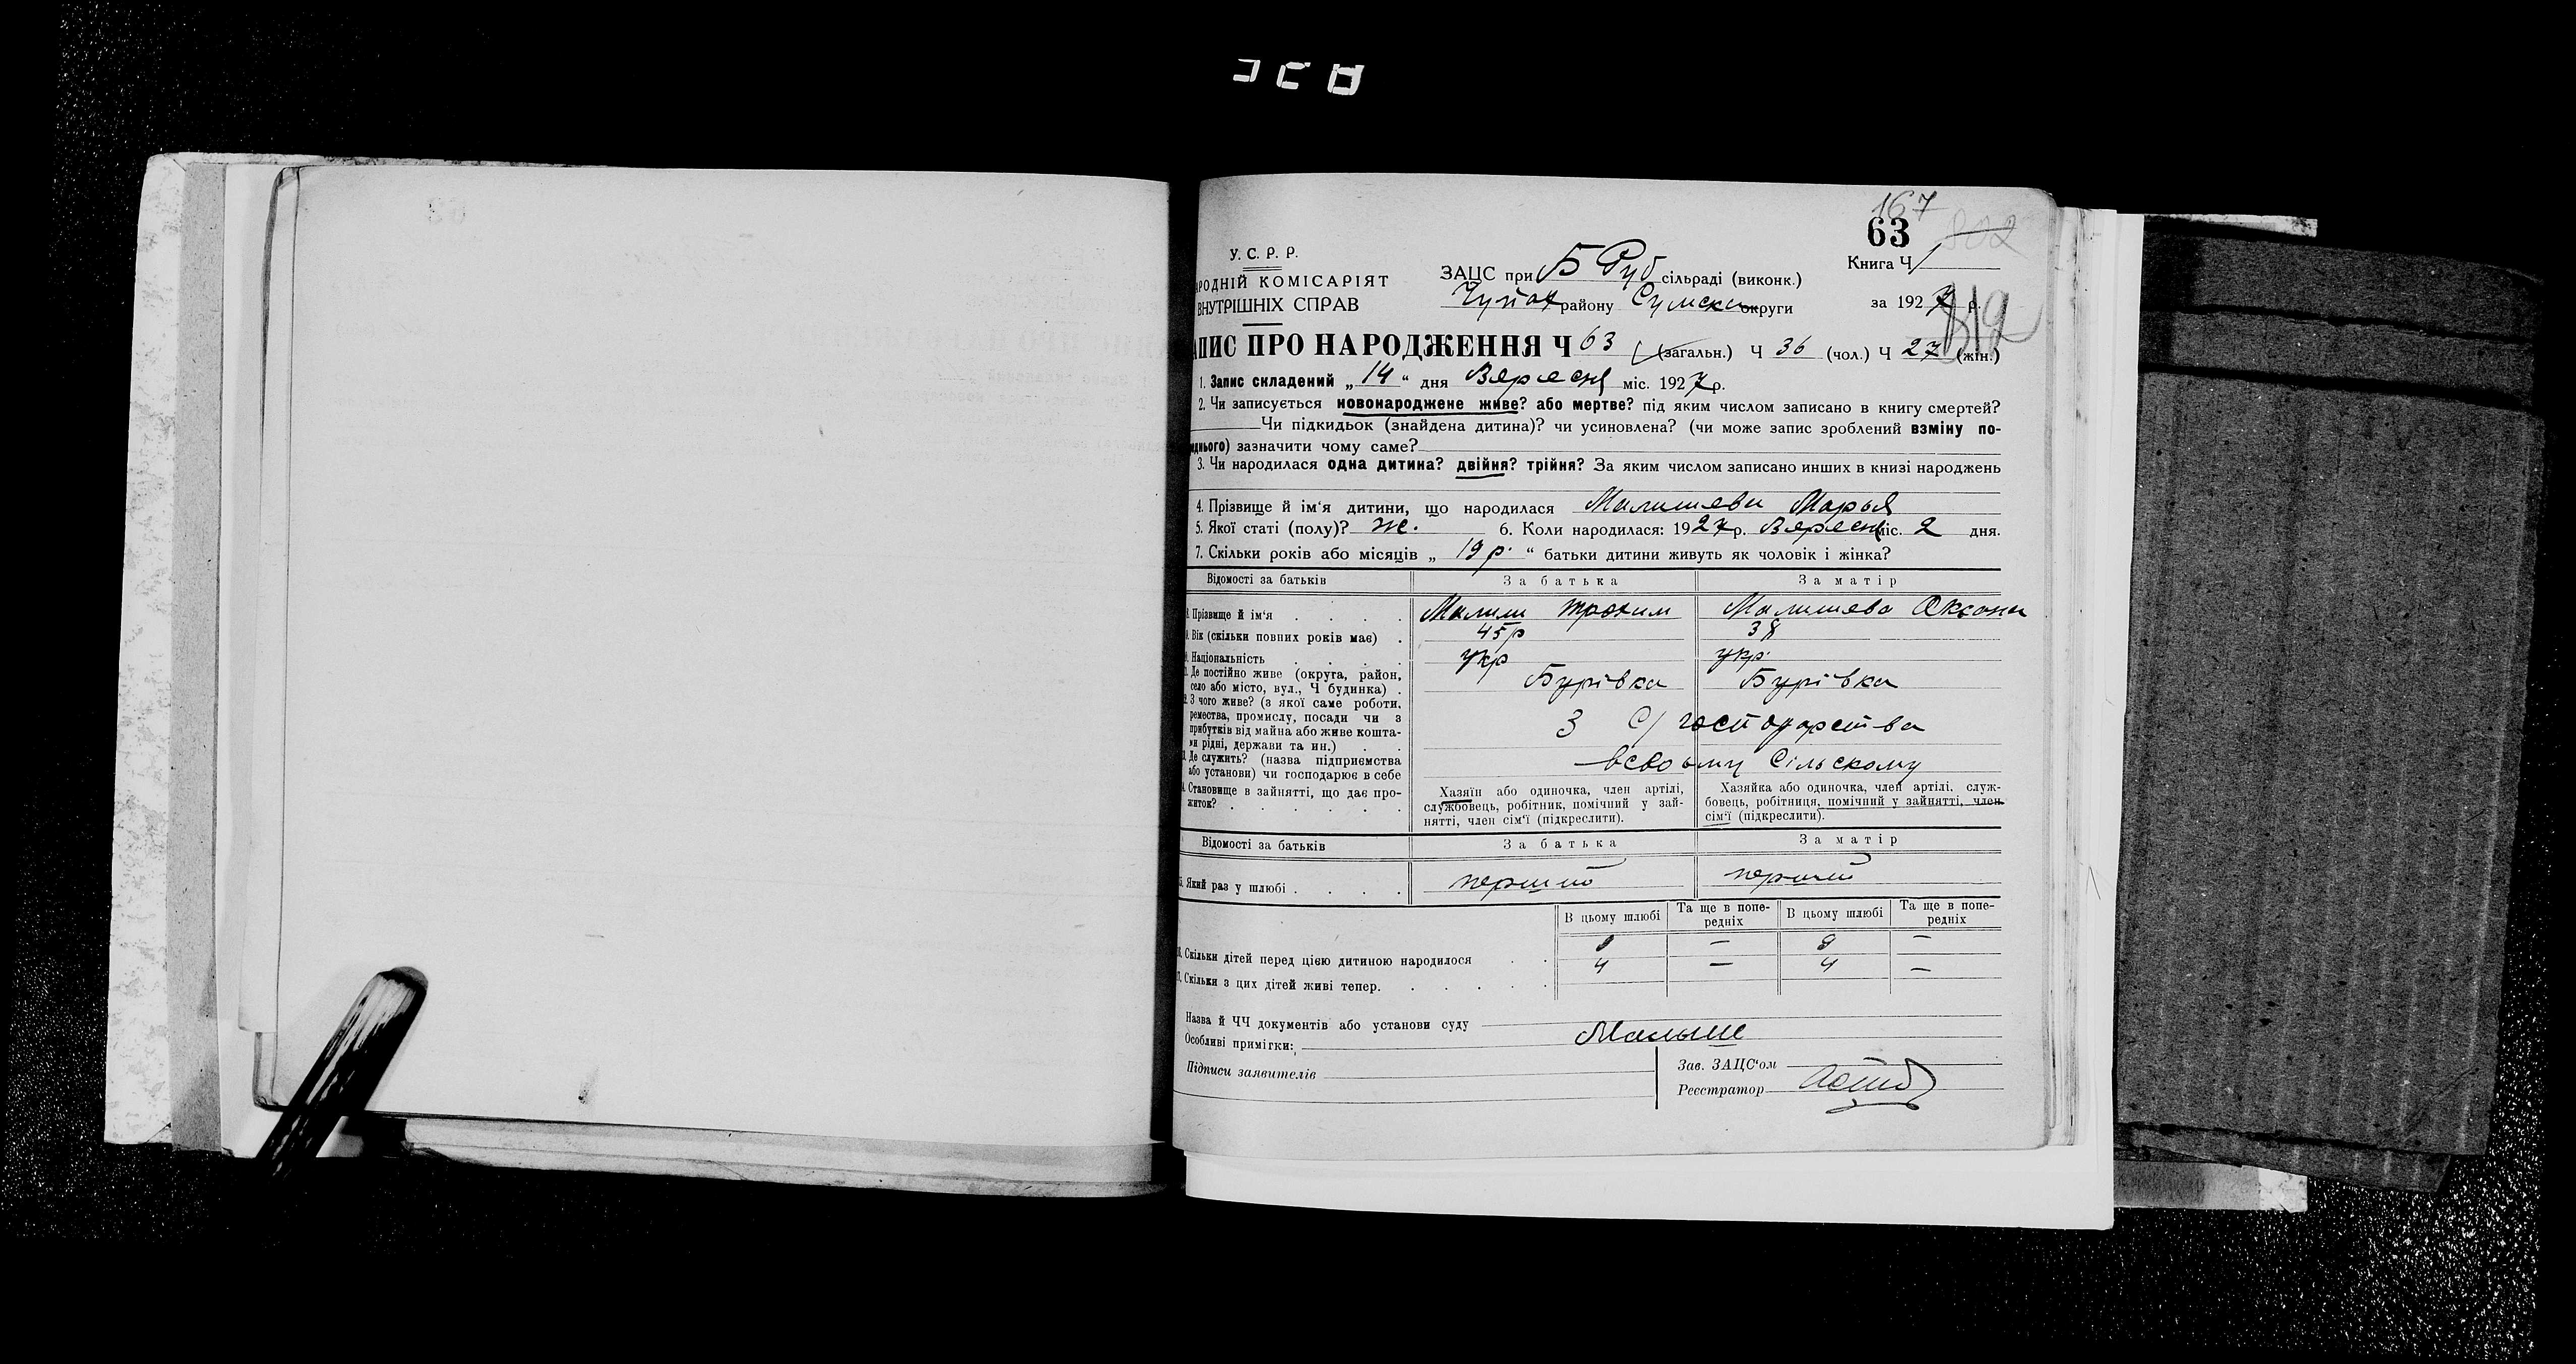 167
63 302
У. С. Р. Р.
АРОДНІЙ КОМІСАРІЯТ
ВНУТРІШНІХ СПРАВ
ЗАЦС при Б Руб сільраді (виконк.)
Книга Ч 1
району Сумски округи
за 1927 р.
АПИС ПРО НАРОДЖЕННЯ Ч 63 (загальн.) Ч 36 (чол.) Ч 27 (жін.)
1. Запис складений „ 14 “ дня Вересня міс. 1927 р.
2. Чи записується новонароджене живе? або мертве? під яким числом записано в книгу смертей?
Чи підкидьок (знайдена дитина)? чи усиновлена? (чи може запис зроблений взміну по-
днього) зазначити чому саме?
3. Чи народилася одна дитина? двійня? трійня? За яким числом записано инших в книзі народжень
4. Прізвище й ім‘я дитини, що народилася Малишева Марья
5. Якої статі (полу)? Ж. 6. Коли народилася: 1927 р. Вересня міс. 2 дня.
7. Скільки років або місяців „ 19 р. “ батьки дитини живуть як чоловік і жінка?
Відомості за батьків За батька За матір
8. Прізвище й ім‘я Малиш Трохим Малишева Оксана
9. Вік (скільки повних років має) 45 р 38
Національність укр укр.
Де постійно живе (округа, район,
село або місто, вул., Ч будинка) Бурівка Бурівка
2. З чого живе? (з якої саме роботи,
ремества, промислу, посади чи з
прибутків від майна або живе кошта-
ми рідні, держави та ин.) З С/господарства
Де служить? (назва підприємства
або установи) чи господарює в себе всвоьму Сільскому
Становище в зайнятті, що дає про-
житок?
Хазяїн або одиночка, член артілі,
службовець, робітник, помічний у зай-
нятті, член сім‘ї (підкреслити).
Хазяйка або одиночка, член артілі, служ-
бовець, робітниця, помічний у зайнятті, член
сім‘ї (підкреслити).
Відомості за батьків За батька За матір
5. Який раз у шлюбі перший перший
В цьому шлюбі Та ще в попе-редніх В цьому шлюбі Та ще в попе-редніх
Скільки дітей перед цією дитиною народилося 8 — 8 —
Скільки з цих дітей живі тепер. 4 — 4 —
Назва й ЧЧ документів або установи суду
Особливі примітки: Малыш
Підписи заявителів
Зав. ЗАЦС‘ом
Реєстратор